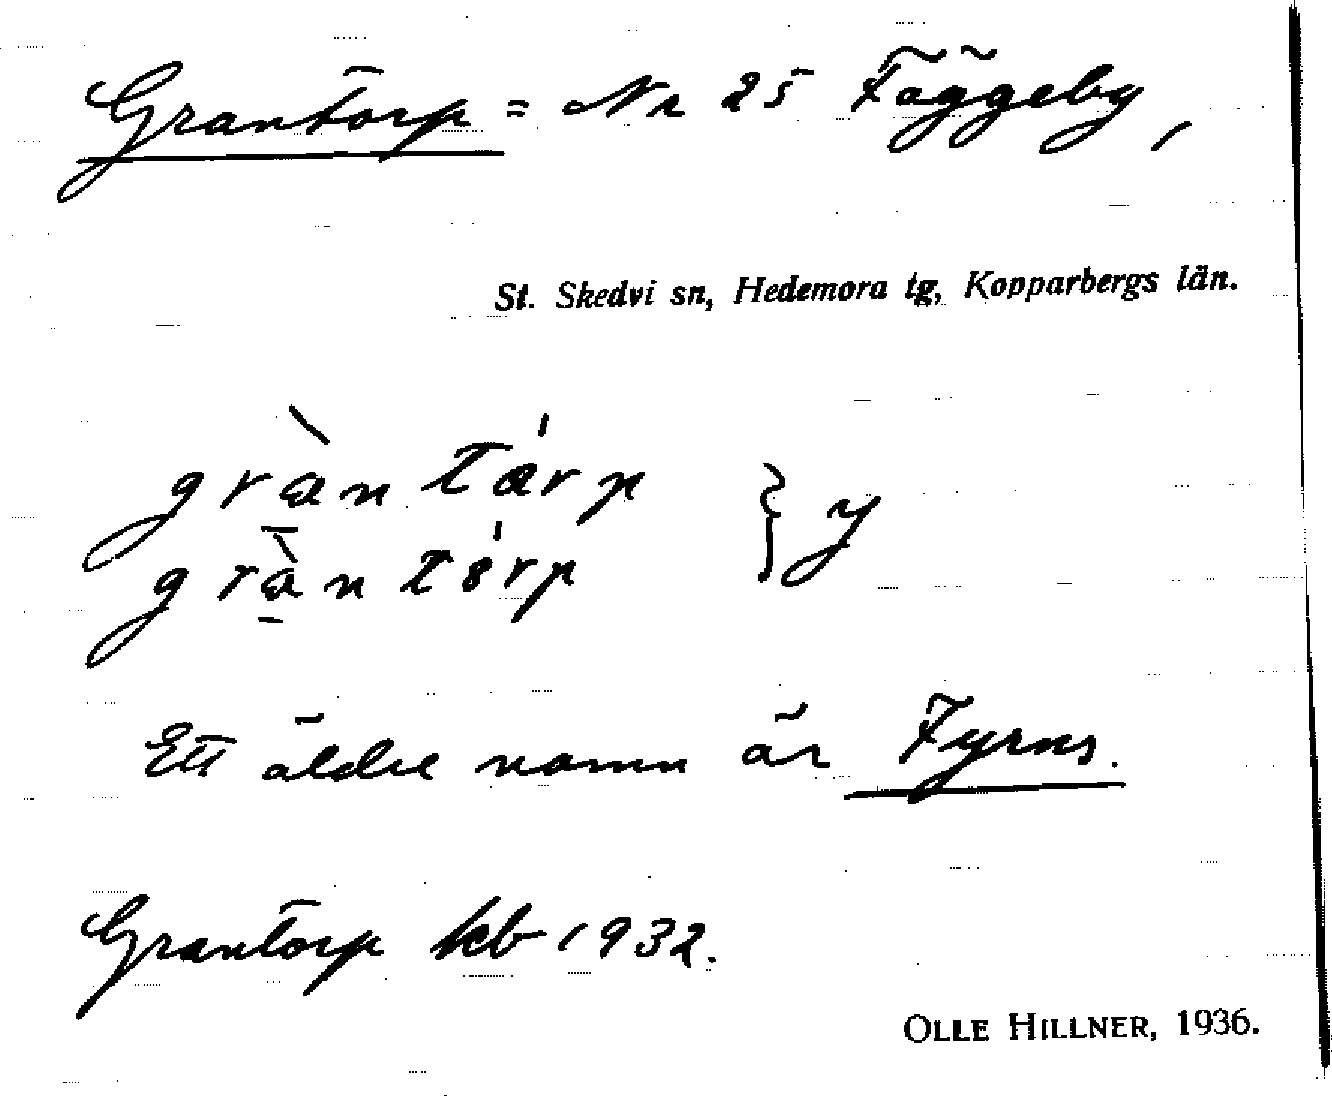 Grantorp = Nr 25 Fäggeby,
St. Skedvi sn, Hedemora tg, Kopparbergs län.
gràntárp } y
gràntórp
Ett äldre namn är Fyrns.
Grantorp kb 1932.
OLLE HILLNER, 1936.